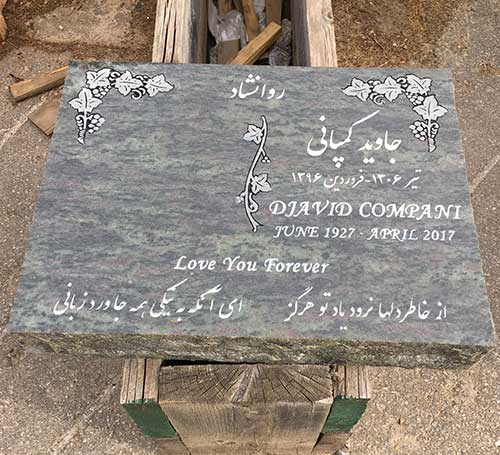 روانشاد
جاوید کمپانی
تیر ۱۳۰۶ - فروردین ۱۳۹۶
DJAVID COMPANI
JUNE 1927 - APRIL 2017
Love You Forever
از خاطر دلها نرود یاد تو هرگز
ای آنکه به نیکی همه جا ورد زبانی